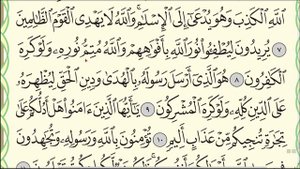 اللَّهِ الْكَذِبَ وَهُوَ يُدْعَىٰ إِلَى الْإِسْلَٰمِ ۚ وَاللَّهُ لَا يَهْدِى الْقَوْمَ الظَّٰلِمِينَ
٧ يُرِيدُونَ لِيُطْفِـُٔوا۟ نُورَ اللَّهِ بِأَفْوَٰهِهِمْ وَاللَّهُ مُتِمُّ نُورِهِۦ وَلَوْ كَرِهَ
الْكَٰفِرُونَ ٨ هُوَ الَّذِىٓ أَرْسَلَ رَسُولَهُۥ بِالْهُدَىٰ وَدِينِ الْحَقِّ لِيُظْهِرَهُۥ
عَلَى الدِّينِ كُلِّهِۦ وَلَوْ كَرِهَ الْمُشْرِكُونَ ٩ يَٰٓأَيُّهَا الَّذِينَ ءَامَنُوا۟ هَلْ أَدُلُّكُمْ عَلَىٰ
تِجَٰرَةٍ تُنجِيكُم مِّنْ عَذَابٍ أَلِيمٍ ١٠ تُؤْمِنُونَ بِاللَّهِ وَرَسُولِهِۦ وَتُجَٰهِدُونَ